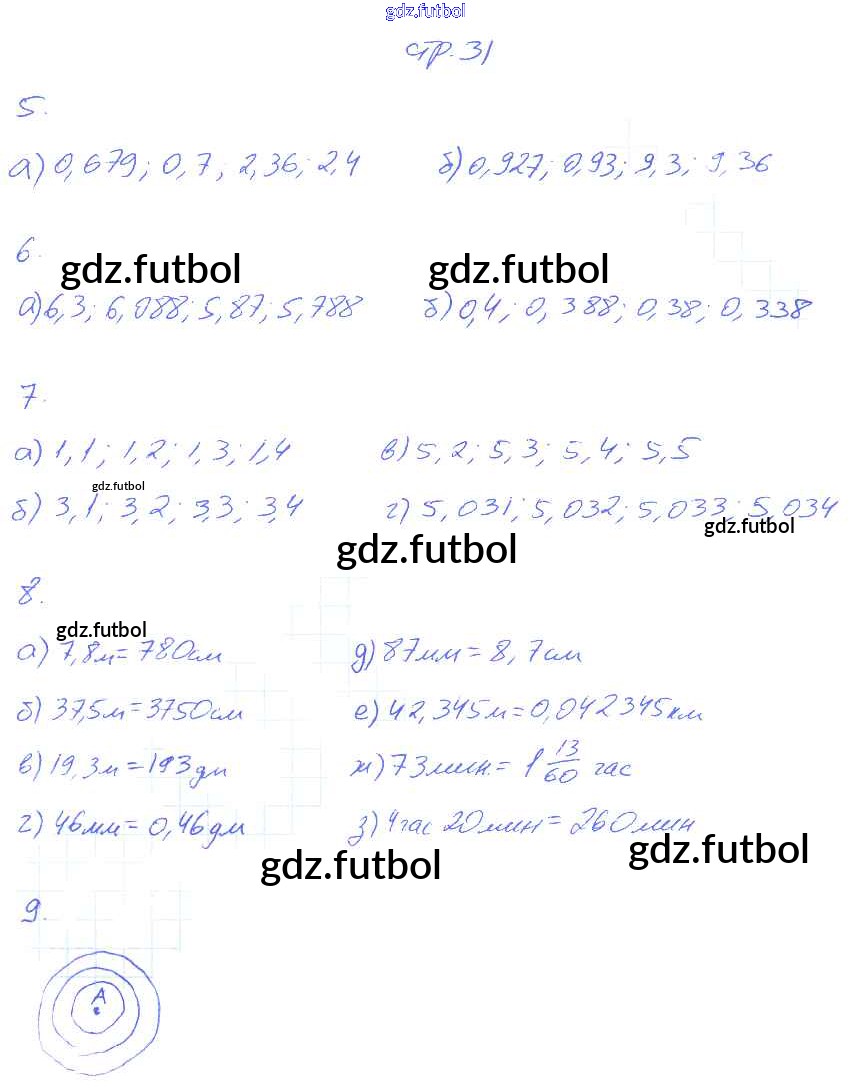 gdz.futbol
стр. 31
5.
а) 0,679; 0,7; 2,36; 2,4 б) 0,927; 0,93; 9,3; 9,36
6.
gdz.futbol gdz.futbol
а) 6,3; 6,088; 5,87; 5,788 б) 0,4; 0,388; 0,38; 0,338
7.
а) 1,1; 1,2; 1,3; 1,4 в) 5,2; 5,3; 5,4; 5,5
gdz.futbol
б) 3,1; 3,2; 3,3; 3,4 г) 5,031; 5,032; 5,033; 5,034
gdz.futbol
gdz.futbol
8.
gdz.futbol
а) 7,8м = 780см д) 87мм = 8,7см
б) 37,5м = 3750см е) 42,345м = 0,042345км
в) 19,3м = 193дм ж) 73мин. = 1 13/60 час
г) 46мм = 0,46дм з) 4час 20мин = 260мин
gdz.futbol gdz.futbol
9.
А